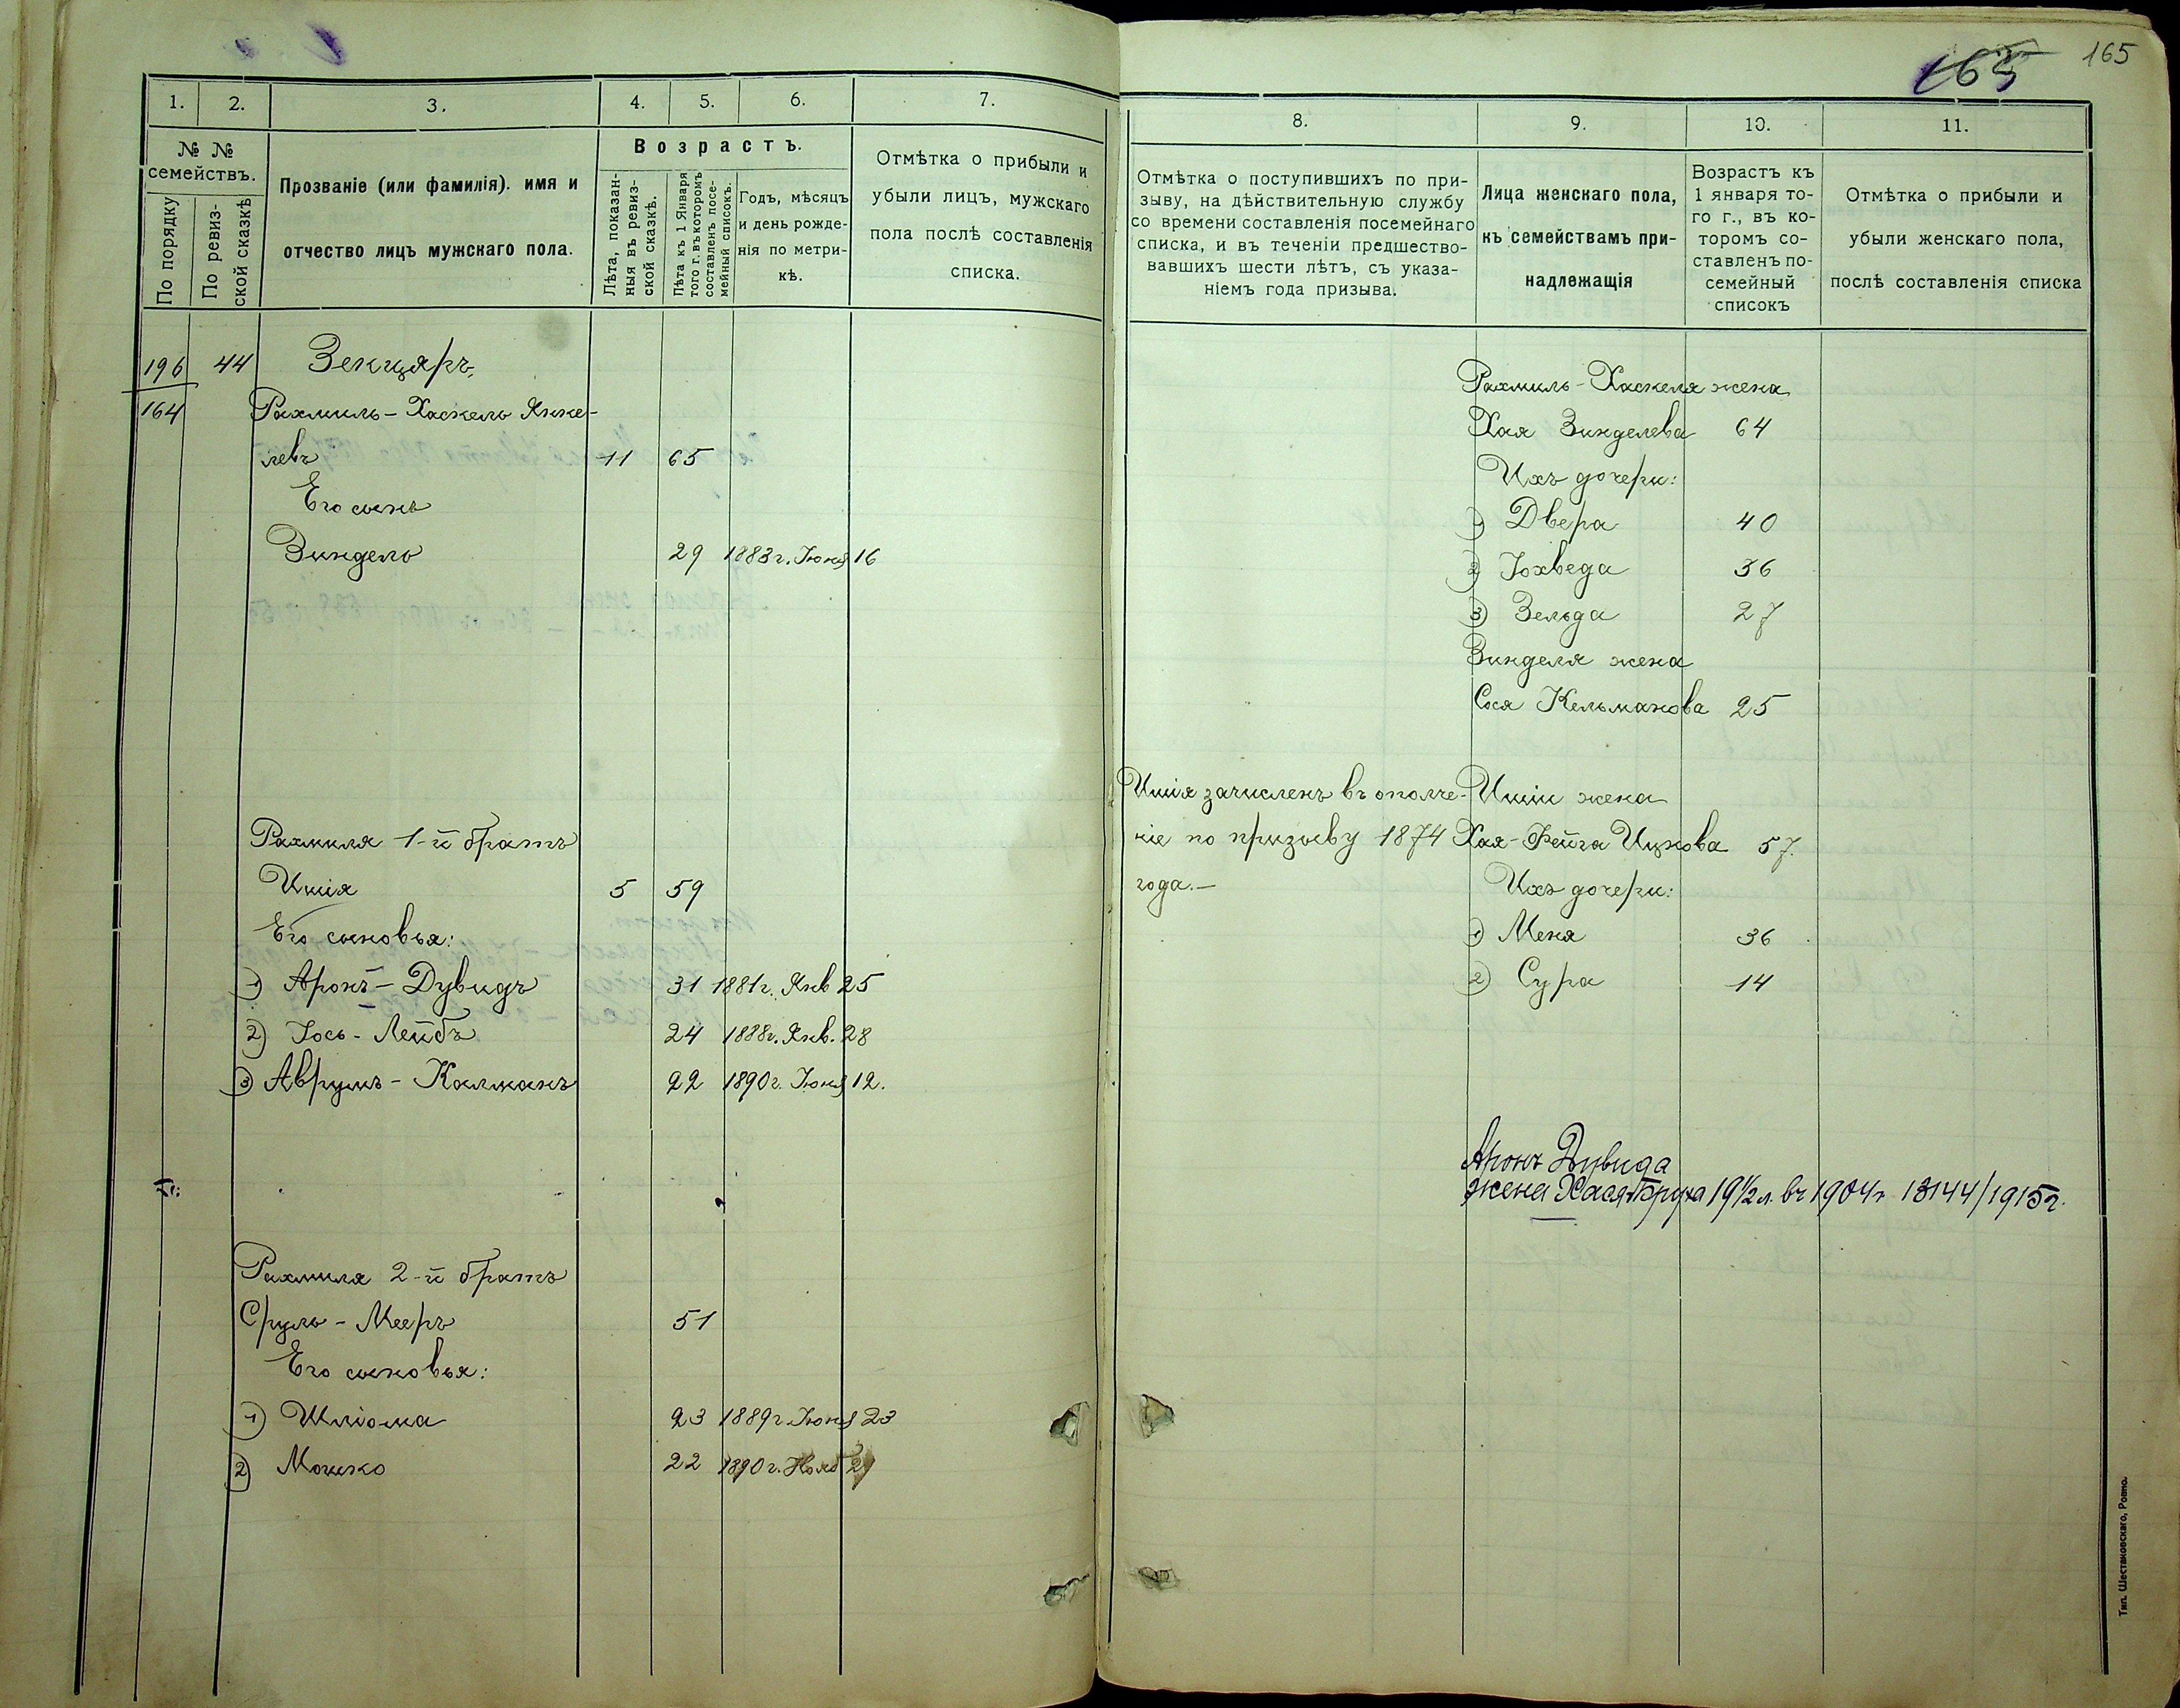 165
165
1.
2.
3.
4.
5.
6.
7.
№ №
семействъ.
По порядку
По ревиз-
ской сказкѣ
Прозваніе (или фамилія). имя и
отчество лицъ мужскаго пола.
Возрастъ.
Лѣта, показан-
ныя въ ревиз-
ской сказкѣ.
Лѣта къ 1 Января
того г. въ которомъ
составленъ посе-
мейный списокъ.
Годъ, мѣсяцъ
и день рожде-
нія по метри-
кѣ.
Отмѣтка о прибыли и
убыли лицъ, мужскаго
пола послѣ составленія
списка.
196 44 Зекцяръ,
164 Рахмиль-Хаскель Янке-
левъ 11 65
Его сынъ
Зиндель 29 1883г. Іюня 16
Рахмиля 1-й братъ
Ишія 5 59
Его сыновья:
1) Аронъ-Дувидъ 31 1881г. Янв 25
2) Іось-Лейбъ 24 1888г. Янв. 28
3) Аврумъ-Калманъ 22 1890г. Іюня 12.
Рахмиля 2-й братъ
Сруль-Мееръ 51
Его сыновья:
1) Шліома 23 1889г. Іюня 23
2) Мошко 22 1890г. Нояб 29
8.
9.
10.
11.
Отмѣтка о поступившихъ по при-
зыву, на дѣйствительную службу
со времени составленія посемейнаго
списка, и въ теченіи предшество-
вавшихъ шести лѣтъ, съ указа-
ніемъ года призыва.
Лица женскаго пола,
къ семействамъ при-
надлежащія
Возрастъ къ
1 января то-
го г., въ ко-
торомъ со-
ставленъ по-
семейный
списокъ
Отмѣтка о прибыли и
убыли женскаго пола,
послѣ составленія списка
Рахмиль-Хаскеля жена
Хая Зинделева 64
Ихъ дочери:
1) Двера 40
2) Іохведа 36
3) Зельда 27
Зинделя жена
Сося Кельманова 25
Ишія зачисленъ въ ополче-
ніе по призыву 1874
года.—
Ишіи жена
Хая-Фейга Ицкова 57.
Ихъ дочери:
1) Меня 36
2) Сура 14
Аронъ Дувида
жена Хася-Бруха 19 1/2 л. въ 1904г. 13144/1915г.
Тип. Шестаковскаго, Ровно.